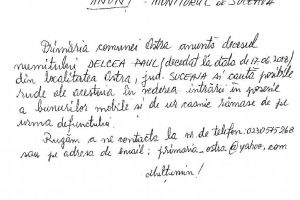 ANUNȚ - MONITORUL DE SUCEAVA
Primăria comunei Ostra anunță decesul
numitului DELCEA PAUL (decedat la data de 17.06.2018)
din localitatea Ostra, jud. SUCEAVA și caută posibile
rude ale acestuia în vederea intrării în posesie
a bunurilor mobile și de un casnic rămase de pe
urma defunctului.
Rugăm a ne contacta la nr. de telefon: 0230575268
sau pe adresa de email: primaria_ostra@yahoo.com
Mulțumim!